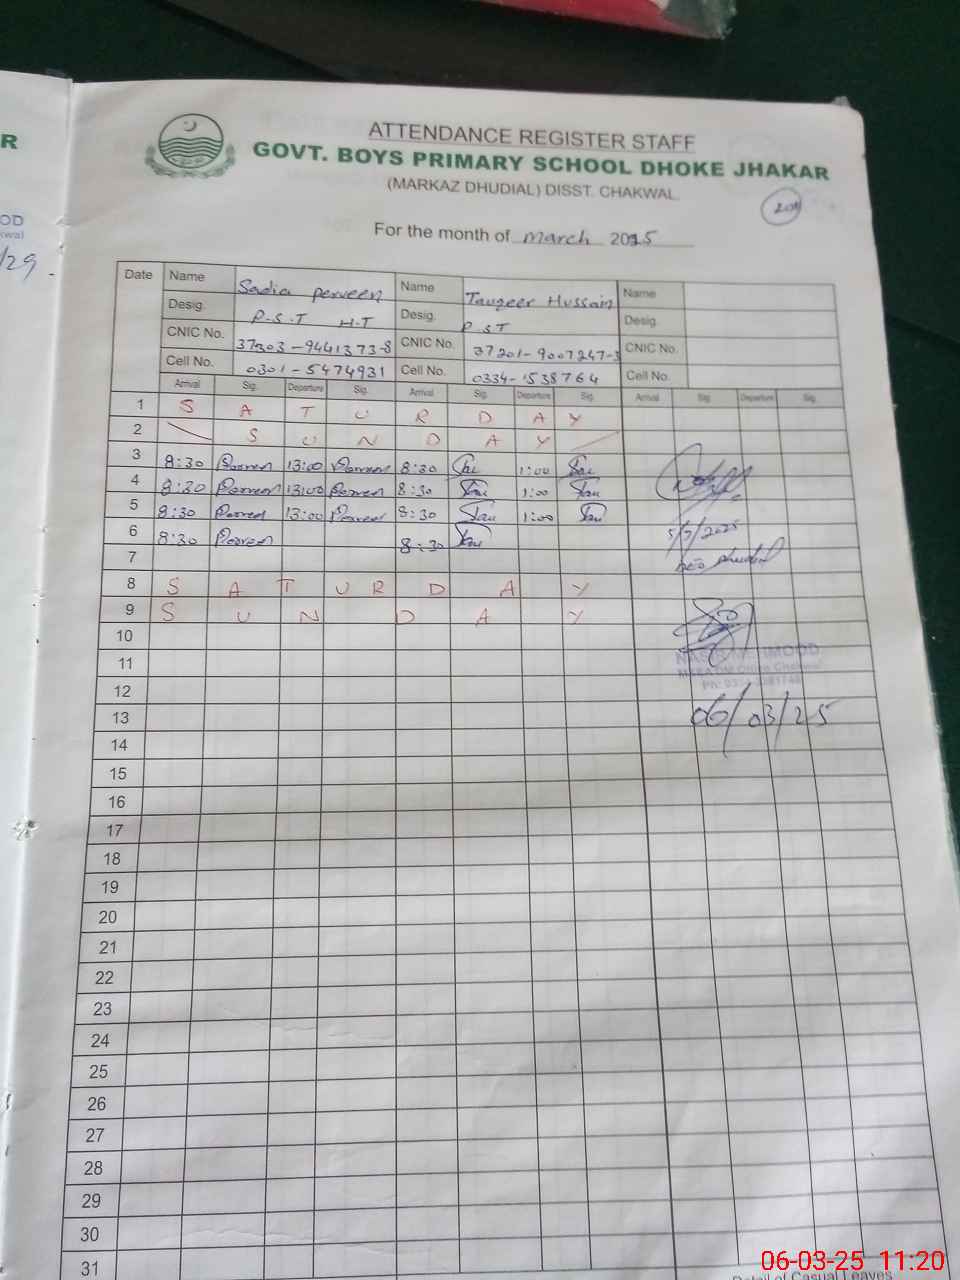 R
OD
kwal
/29
ATTENDANCE REGISTER STAFF
GOVT. BOYS PRIMARY SCHOOL DHOKE JHAKAR
(MARKAZ DHUDIAL) DISST. CHAKWAL
For the month of March 2025
Date Name Sadia Perveen Name Tauqeer Hussain Name
Desig. P.S.T H.T Desig. P.S.T Desig.
CNIC No. 37303-9441373-8 CNIC No. 37201-9007247-3 CNIC No.
Cell No. 0301-5474931 Cell No. 0334-1538764 Cell No.
Arrival Sig. Departure Sig. Arrival Sig. Departure Sig. Arrival Sig. Departure Sig.
1 S A T U R D A Y
2 S U N D A Y
3 8:30 Parveen 13:00 Parveen 8:30 1:00
4 8:30 Parveen 13:00 Parveen 8:30 Tau 1:00 Tau
5 8:30 Parveen 13:00 Parveen 8:30 Tau 1:00 Tau
6 8:30 Parveen 8:30 Tau
5/3/2025
7
8 S A T U R D A Y
9 S U N D A Y
10
11
12
13 06/03/25
14
15
16
17
18
19
20
21
22
23
24
25
26
27
28
29
30
31
Detail of Casual Leaves
06-03-25 11:20